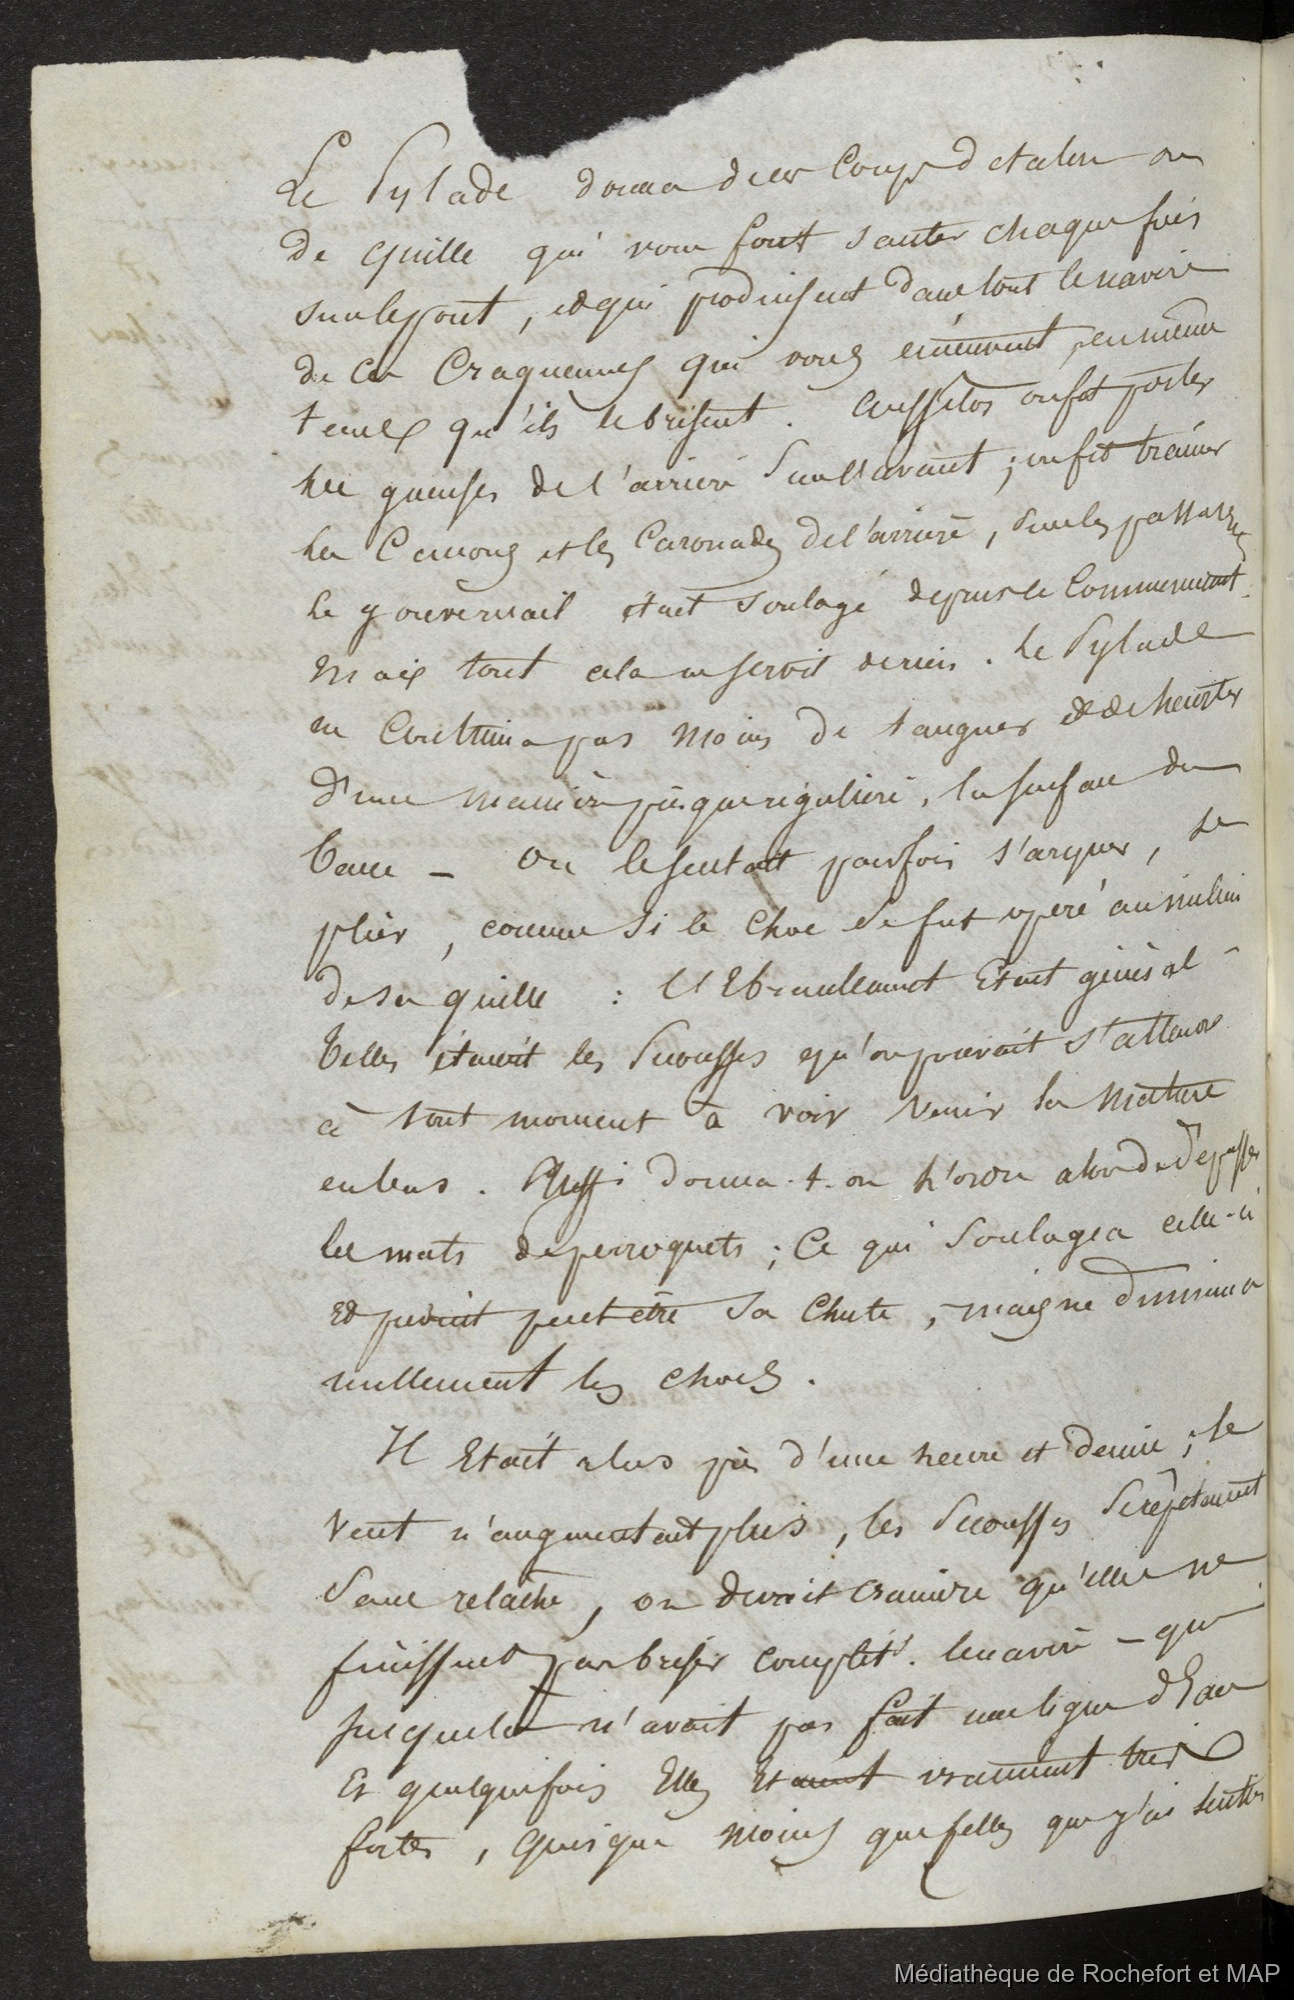 Le Pylade donna de ces coups de talon ou
de quille qui vous font sauter chaque fois
sur le pont, et qui produisent dans tout le navire
de ces craquemens qui vous émeuvent en même
tems qu'ils le brisent. Aussitot on fit porter
les gueuses de l'arrière sur l'avant ; on fit trainer
les canons et les caronades de l'arrière, sur les passavents
le gouvernail était soulagé depuis le commencement.
mais tout cela ne servit de rien. Le Pylade
ne continua pas moins de tanguer et de heurter
d'une manière presque régulière, la surface du
banc – On le sentait parfois s'arquer, se
plier, comme si le choc se fut opéré au milieu
de sa quille : l'Ebranlement Etait général –
telles étaient les secousses qu'on pouvait s'attendre
à tout moment à voir venir la mâture
en bas. Aussi donna-t-on l'ordre alors de dépasser
les mats de perroquets ; Ce qui soulagea celle-ci
et prévint peut être sa chute, mais ne diminua
nullement les chocs.
Il Etait alors près d'une heure et demie ; le
vent n'augmentant plus, les secousses se répétaient
sans relâche, on devait craindre qu'elles ne
finissent par briser complèt.t le navire – qui
jusque là n'avait pas fait une ligne d'Eau
Et quelquefois Elles Etaient vraiment très
fortes, quoique moins que celles que j'ai senties
Médiathèque de Rochefort et MAP